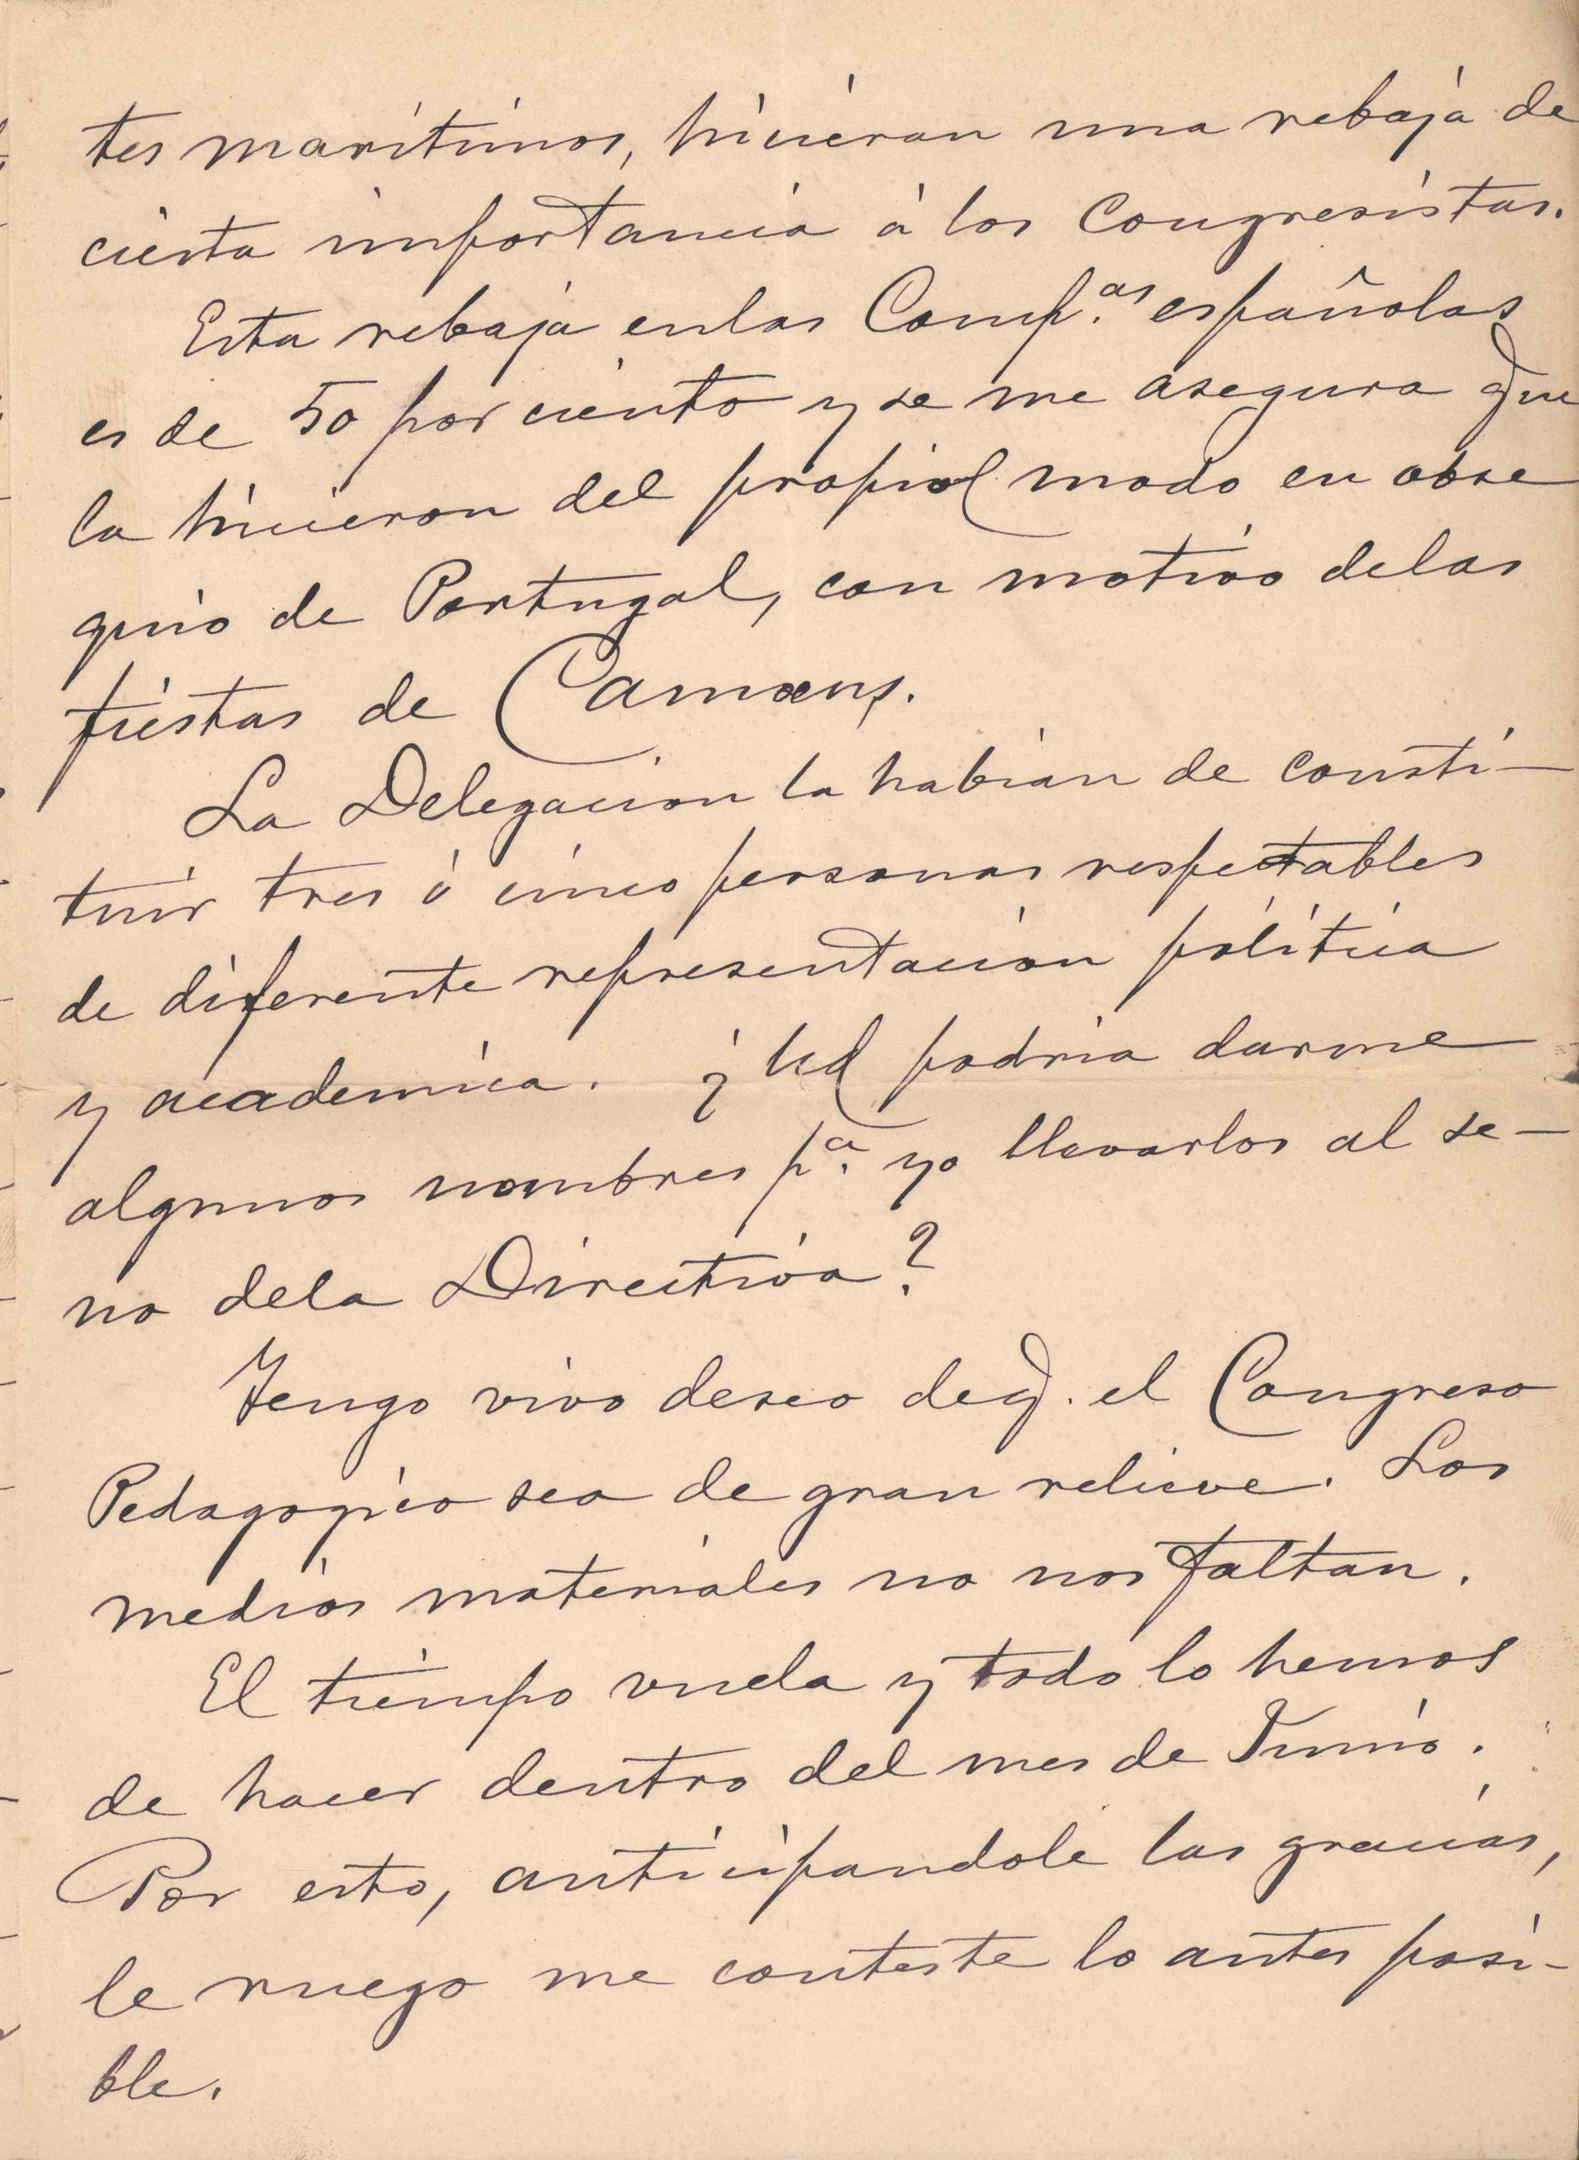 tes maritimos, hicieran una rebaja de
cierta importancia á los Congresistas.
Esta rebaja enlas Comp.as españolas
es de 50 por ciento y se me asegura que
la hicieron del propio modo en obse
quio de Portugal, con motivo delas
fiestas de Camoens.
La Delegacion la habian de consti-
tuir tres ó cinco personas respetables
de diferente representacion politica
y academica. ¿Ud podria darme
algunos nombres pa. yo llevarlos al se-
no dela Directiva?
Tengo vivo deseo deq. el Congreso
Pedagogico sea de gran relieve. Los
medios materiales no nos faltan.
El tiempo vuela y todo lo hemos
de hacer dentro del mes de Junio.
Por esto, anticipandole las gracias,
le ruego me conteste lo antes posi-
ble.